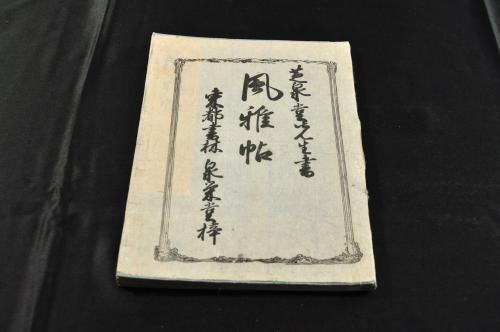 芝泉堂先生書
風雅帖
東都書林 泉栄堂梓